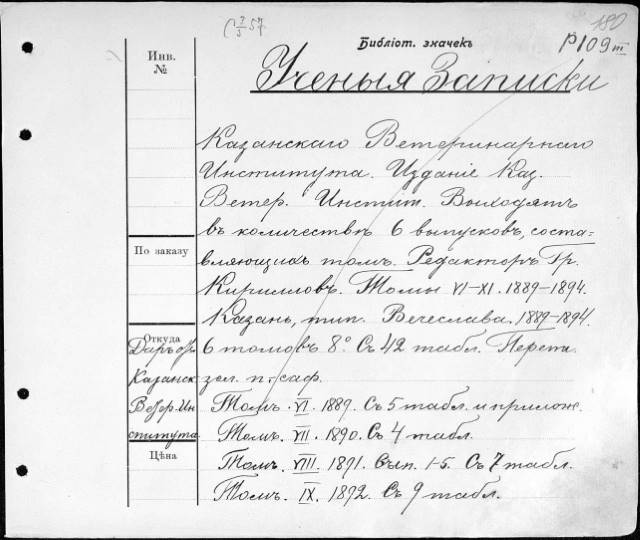 180
С 3/5 57
Библіот. значекъ
P109 III
Инв.
№
Ученыя Записки
Казанскаго Ветеринарнаго
Института. Изданіе Каз.
Ветер. Инстит. Выходятъ
въ количествѣ 6 выпусковъ, соста-
вляющихъ томъ. Редакторъ Гр.
По заказу
Кирилловъ. Томы VI–XI. 1889–1894.
Казань, тип. Вечеслава. 1889–1894.
Откуда
Даръ отъ
6 томовъ 8° Съ 42 табл. Переп.
Казанск
зол. п. саф.
Ветер. Ин
Томъ. VI. 1889. Съ 5 табл. и прилож.
ститута
Томъ. VII. 1890. Съ 4 табл.
Цѣна
Томъ. VIII. 1891. Вып. 1-5. Съ 7 табл.
Томъ. IX. 1892. Съ 9 табл.